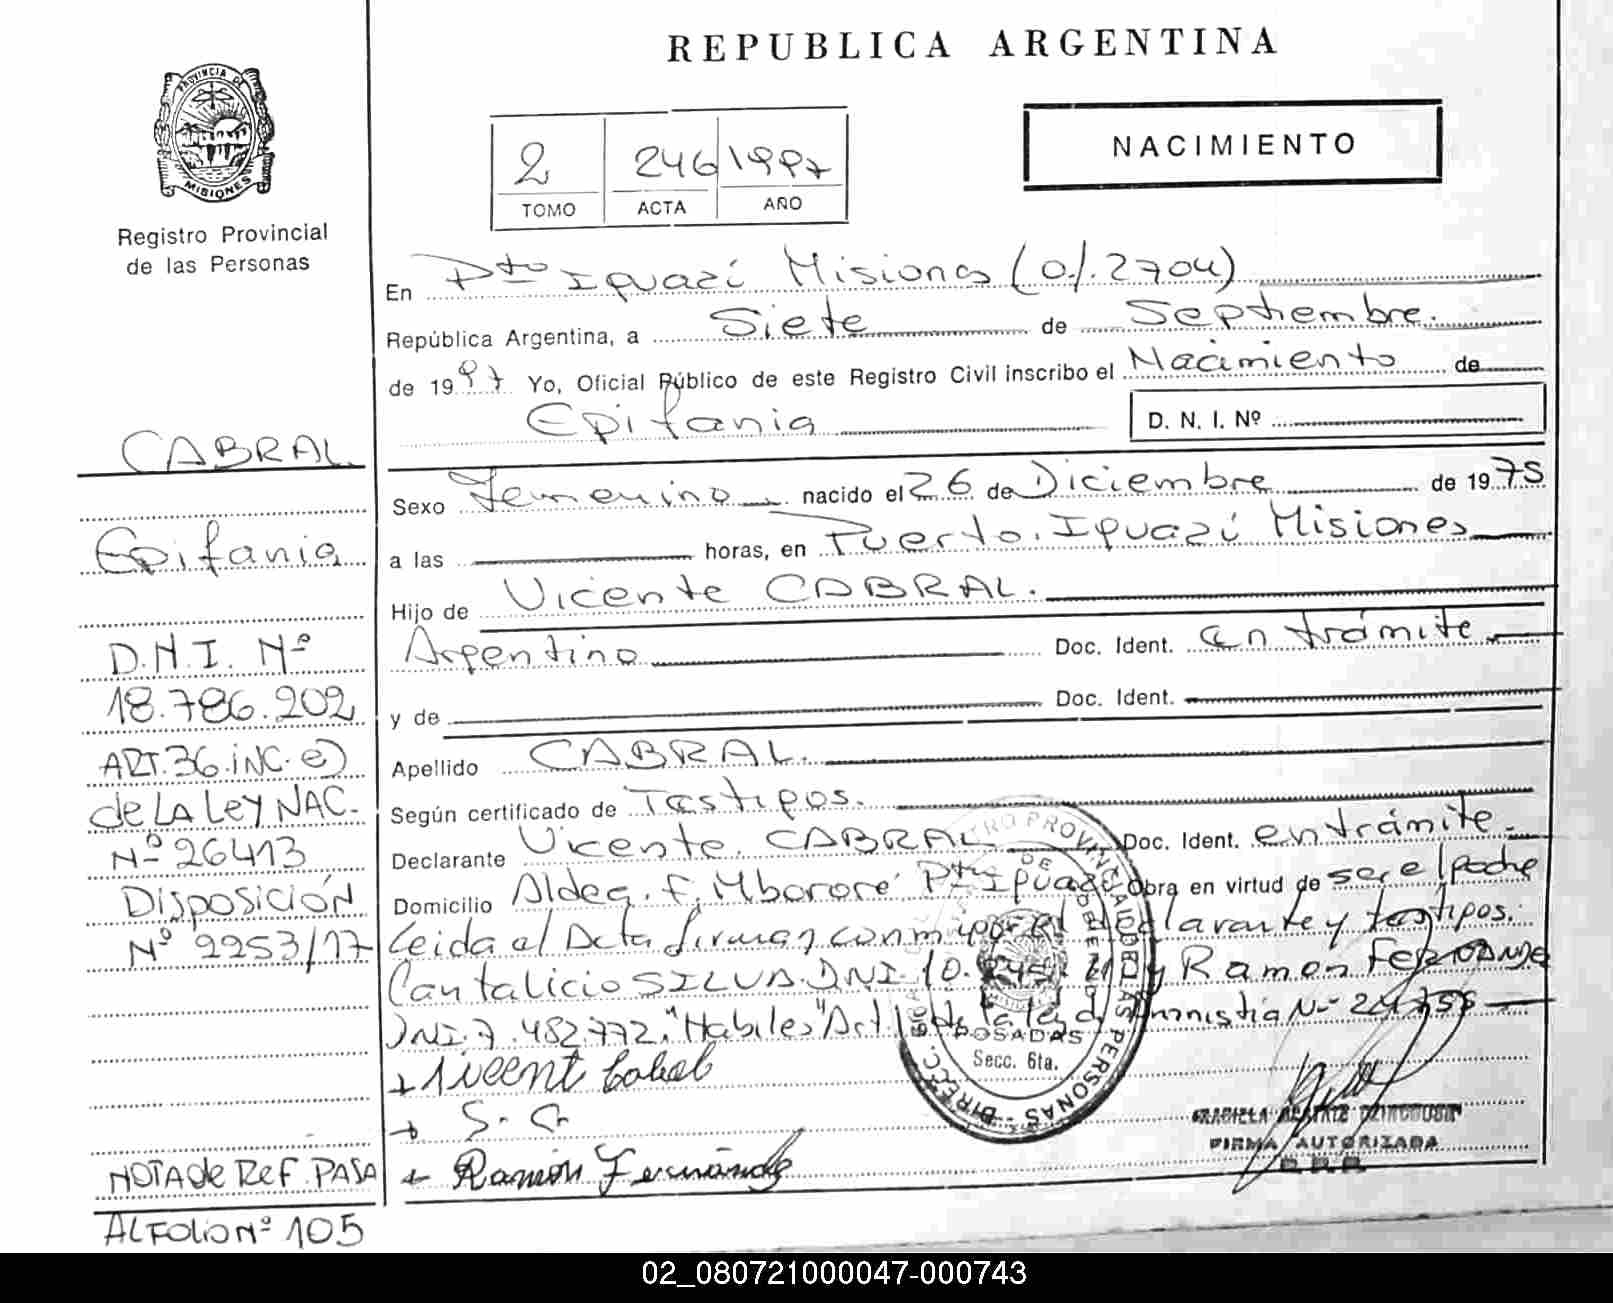 REPUBLICA ARGENTINA
PROVINCIA DE
MISIONES
Registro Provincial
de las Personas
2 246 1997
TOMO ACTA AÑO
NACIMIENTO
En Pto Iguazú Misiones (o/. 2704)
República Argentina, a Siete de Septiembre.
de 1997 Yo, Oficial Público de este Registro Civil inscribo el Nacimiento de
Epifania D. N. I. Nº
Sexo Femenino nacido el 26 de Diciembre de 1975
a las horas, en Puerto Iguazú Misiones
Hijo de Vicente CABRAL.
Argentino Doc. Ident. en trámite
y de Doc. Ident.
Apellido CABRAL.
Según certificado de Testigos.
Declarante Vicente CABRAL Doc. Ident. en trámite
Domicilio Aldea F. Mbororé Pto Iguazú Obra en virtud de ser el padre
Leida el Acta firman conmigo el declarante y testigos.
Cantalicio SILVA DNI 10. y Ramon FERNANDE
DNI 7.482.772. "Habiles" Art de la ley de Amnistia Nº
+ Vicent Cabral
+ S. C.
+ Ramón Fernánde
CABRAL
Epifania
D.N.I. Nº
18.786.202
ART. 36 INC. e)
de LA LEY NAC.
Nº 26413
DISPOSICIÓN
Nº 2253/17
NOTA de REF. PASA
AL FOLIO Nº 105
POSADAS
Secc. 6ta.
GRACIELA BEATRIZ
FIRMA AUTORIZADA
02_080721000047-000743